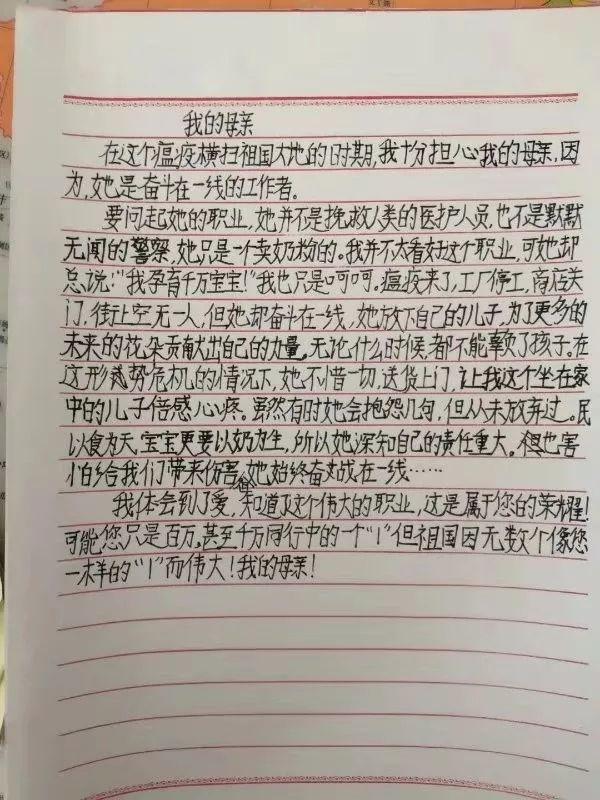 我的母亲
在这个瘟疫横扫祖国大地的时期,我十分担心我的母亲,因
为,她是奋斗在一线的工作者。
要问起她的职业,她并不是挽救人类的医护人员,也不是默默
无闻的警察,她只是一个卖奶粉的。我并不太看好这个职业,可她却
总说:“我孕育千万宝宝!”我也只是呵呵。瘟疫来了,工厂停工,商店关
门,街上空无一人,但她却奋斗在一线,她放下自己的儿子,为了更多的
未来的花朵贡献出自己的力量。无论什么时候,都不能辜负了孩子。在
这形势危机的情况下,她不惜一切,送货上门,让我这个坐在家
中的儿子倍感心疼。虽然有时她会抱怨几句,但从未放弃过。民
以食为天,宝宝更要以奶为生,所以她深知自己的责任重大。她也害
怕给我们带来伤害,但她始终奋战在一线……
我体会到了爱,知道了这个伟大的职业,这是属于您的荣耀!
可能您只是百万,甚至千万同行中的一个“1”但祖国因无数个像您
一样的“1”而伟大!我的母亲!